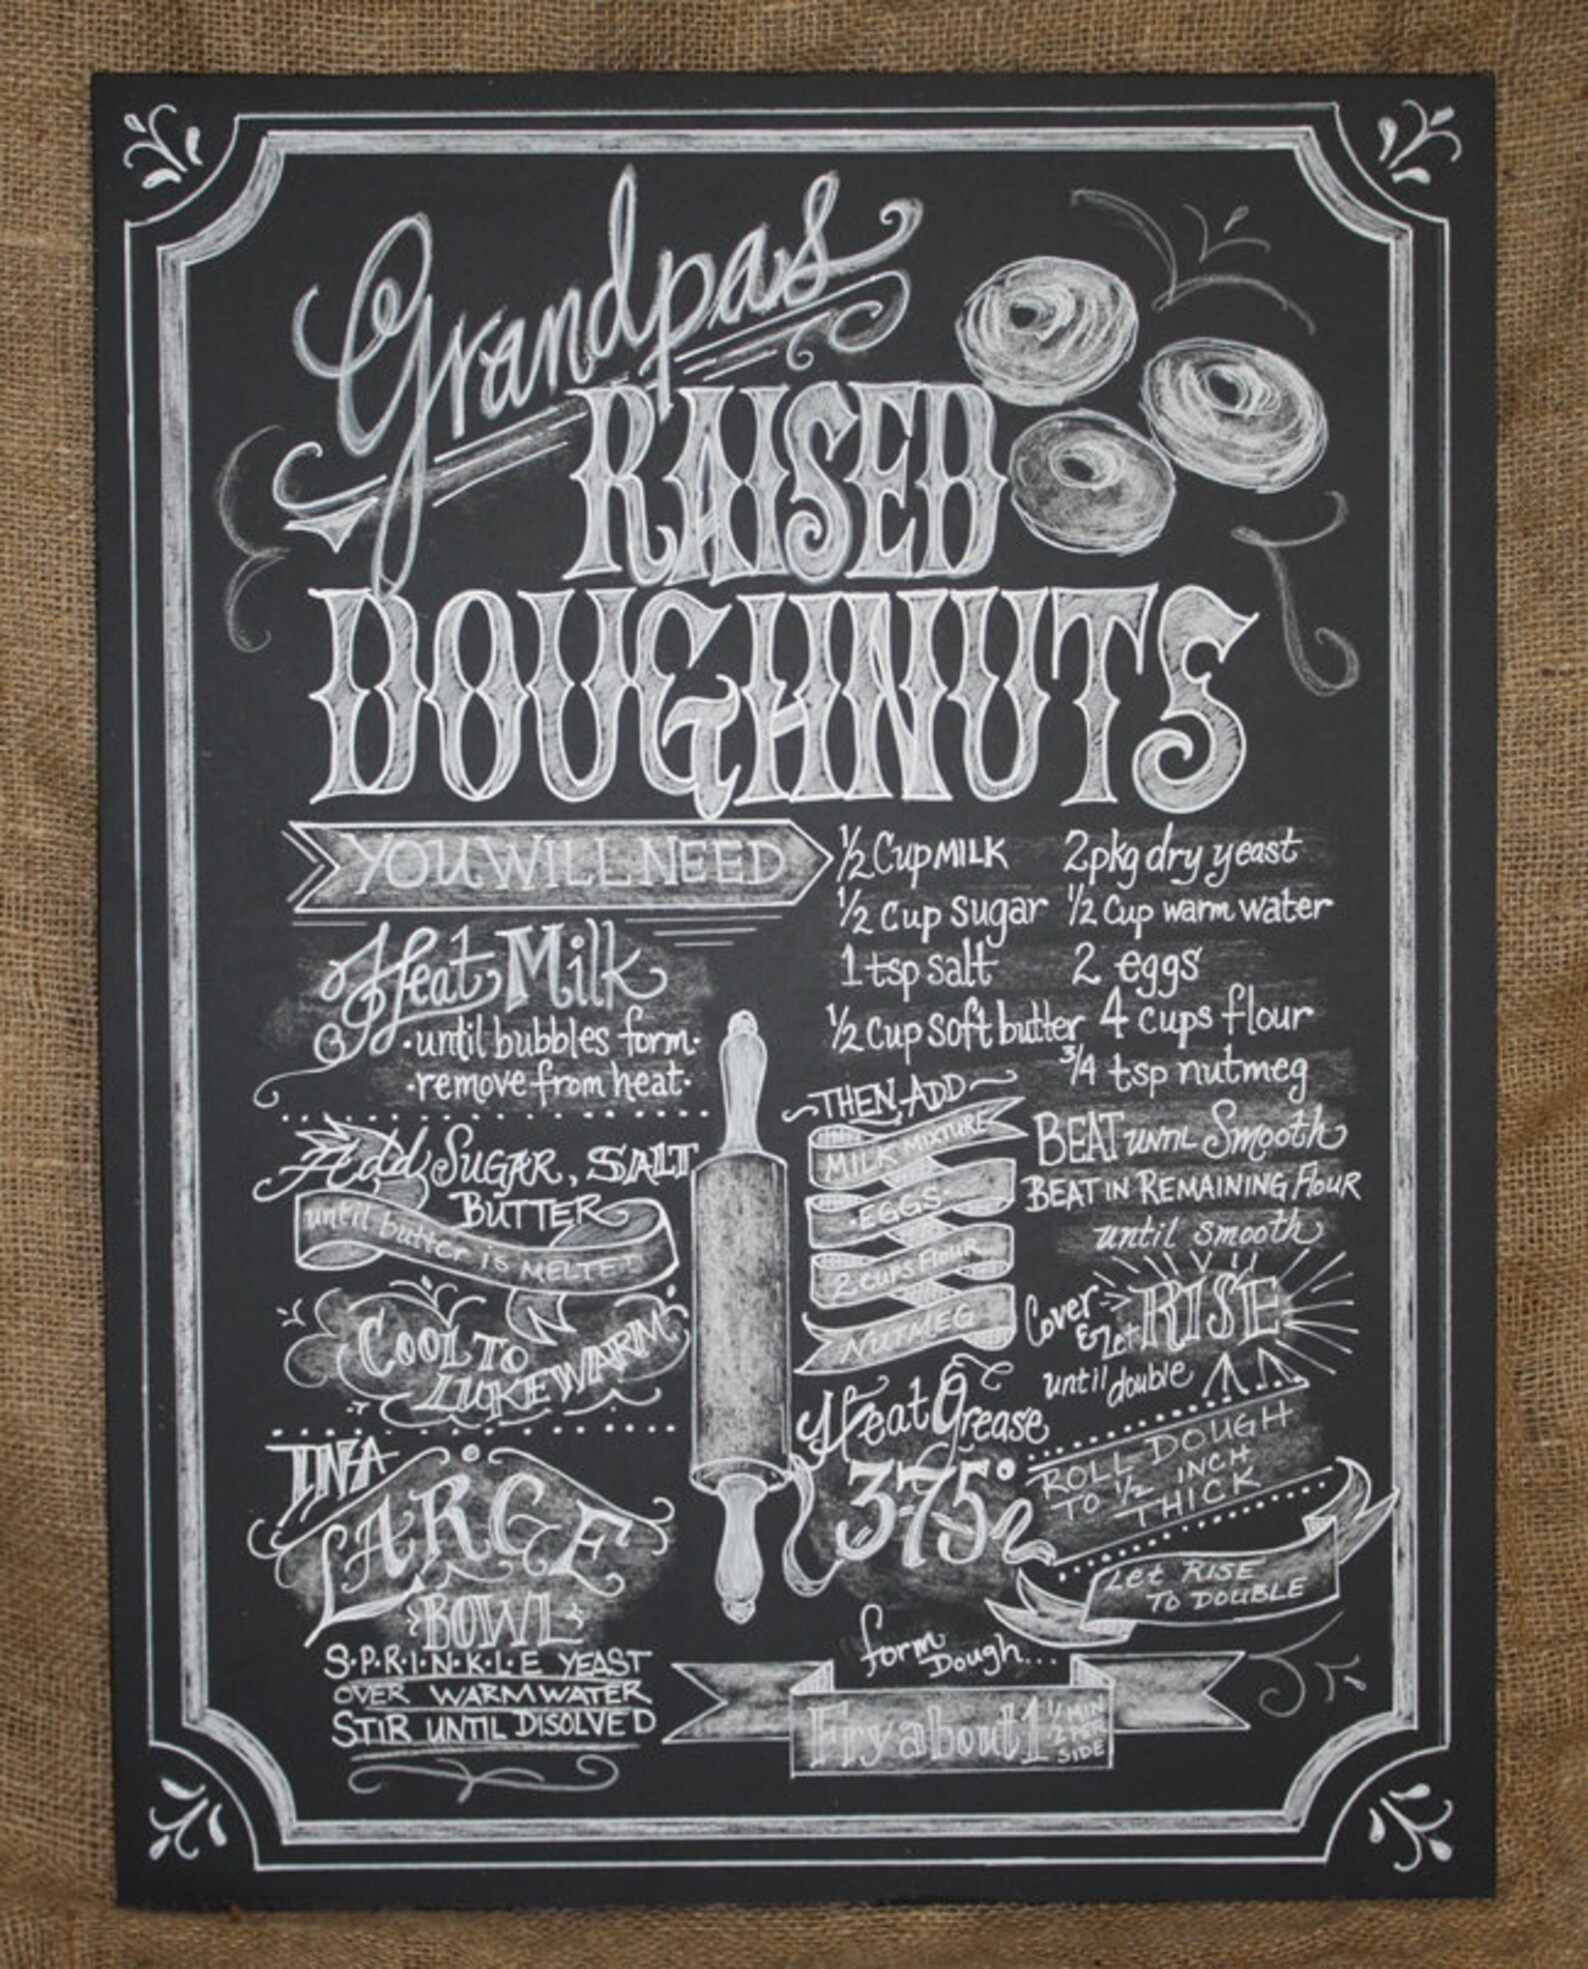 Grandpas
RAISED
DOUGHNUTS
YOU WILL NEED
1/2 Cup MILK
1/2 Cup Sugar
1 tsp salt
1/2 Cup Soft butter
2 pkg dry yeast
1/2 Cup warm water
2 eggs
4 cups flour
3/4 tsp nutmeg
Heat Milk
·until bubbles form·
·remove from heat·
Add SUGAR, SALT
BUTTER
until butter is MELTED
COOL TO
LUKEWARM
IN A
LARGE
BOWL
S·P·R·I·N·K·L·E YEAST
OVER WARM WATER
STIR UNTIL DISOLVED
THEN ADD
MILK MIXTURE
·EGGS·
2 CUPS FLOUR
NUTMEG
BEAT UNTIL Smooth
BEAT IN REMAINING Flour
until smooth
Cover
& Let RISE
until double
Heat Grease
375°
ROLL DOUGH
TO 1/2 INCH
THICK
Let RISE
TO DOUBLE
form
Dough...
Fry about 1 1/2 MIN PER SIDE